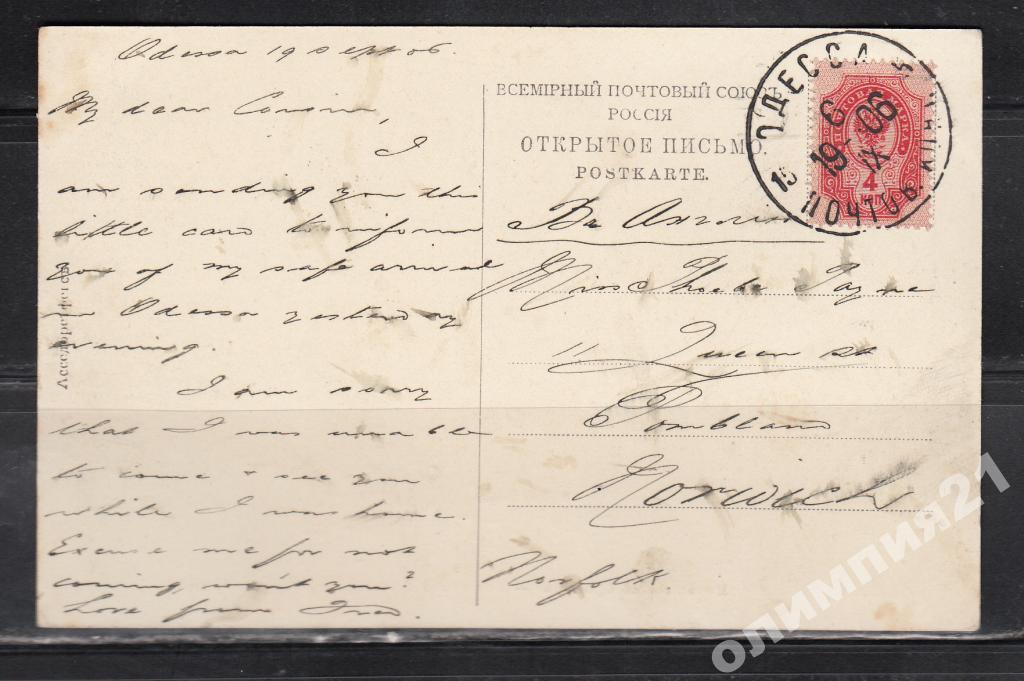 Odessa 19 Sept 06.
My dear Cousin,
I
am sending you this
little card to inform
you of my safe arrival
in Odessa yesterday
evening.
I am sorry
that I was unable
to come & see you
while I was home.
Excuse me for not
coming, won't you?
Love from Fred
ВСЕМІРНЫЙ ПОЧТОВЫЙ СОЮЗЪ
РОССІЯ
ОТКРЫТОЕ ПИСЬМО.
POSTKARTE.
Въ Англію
Miss Phoebe Payne
11 Queen St
Tombland
Norwich
Norfolk.
ОДЕССА
6
19 IX 06
ПОЧТОВ.
ПОЧТОВАЯ МАРКА
4
КОП
олимпия21